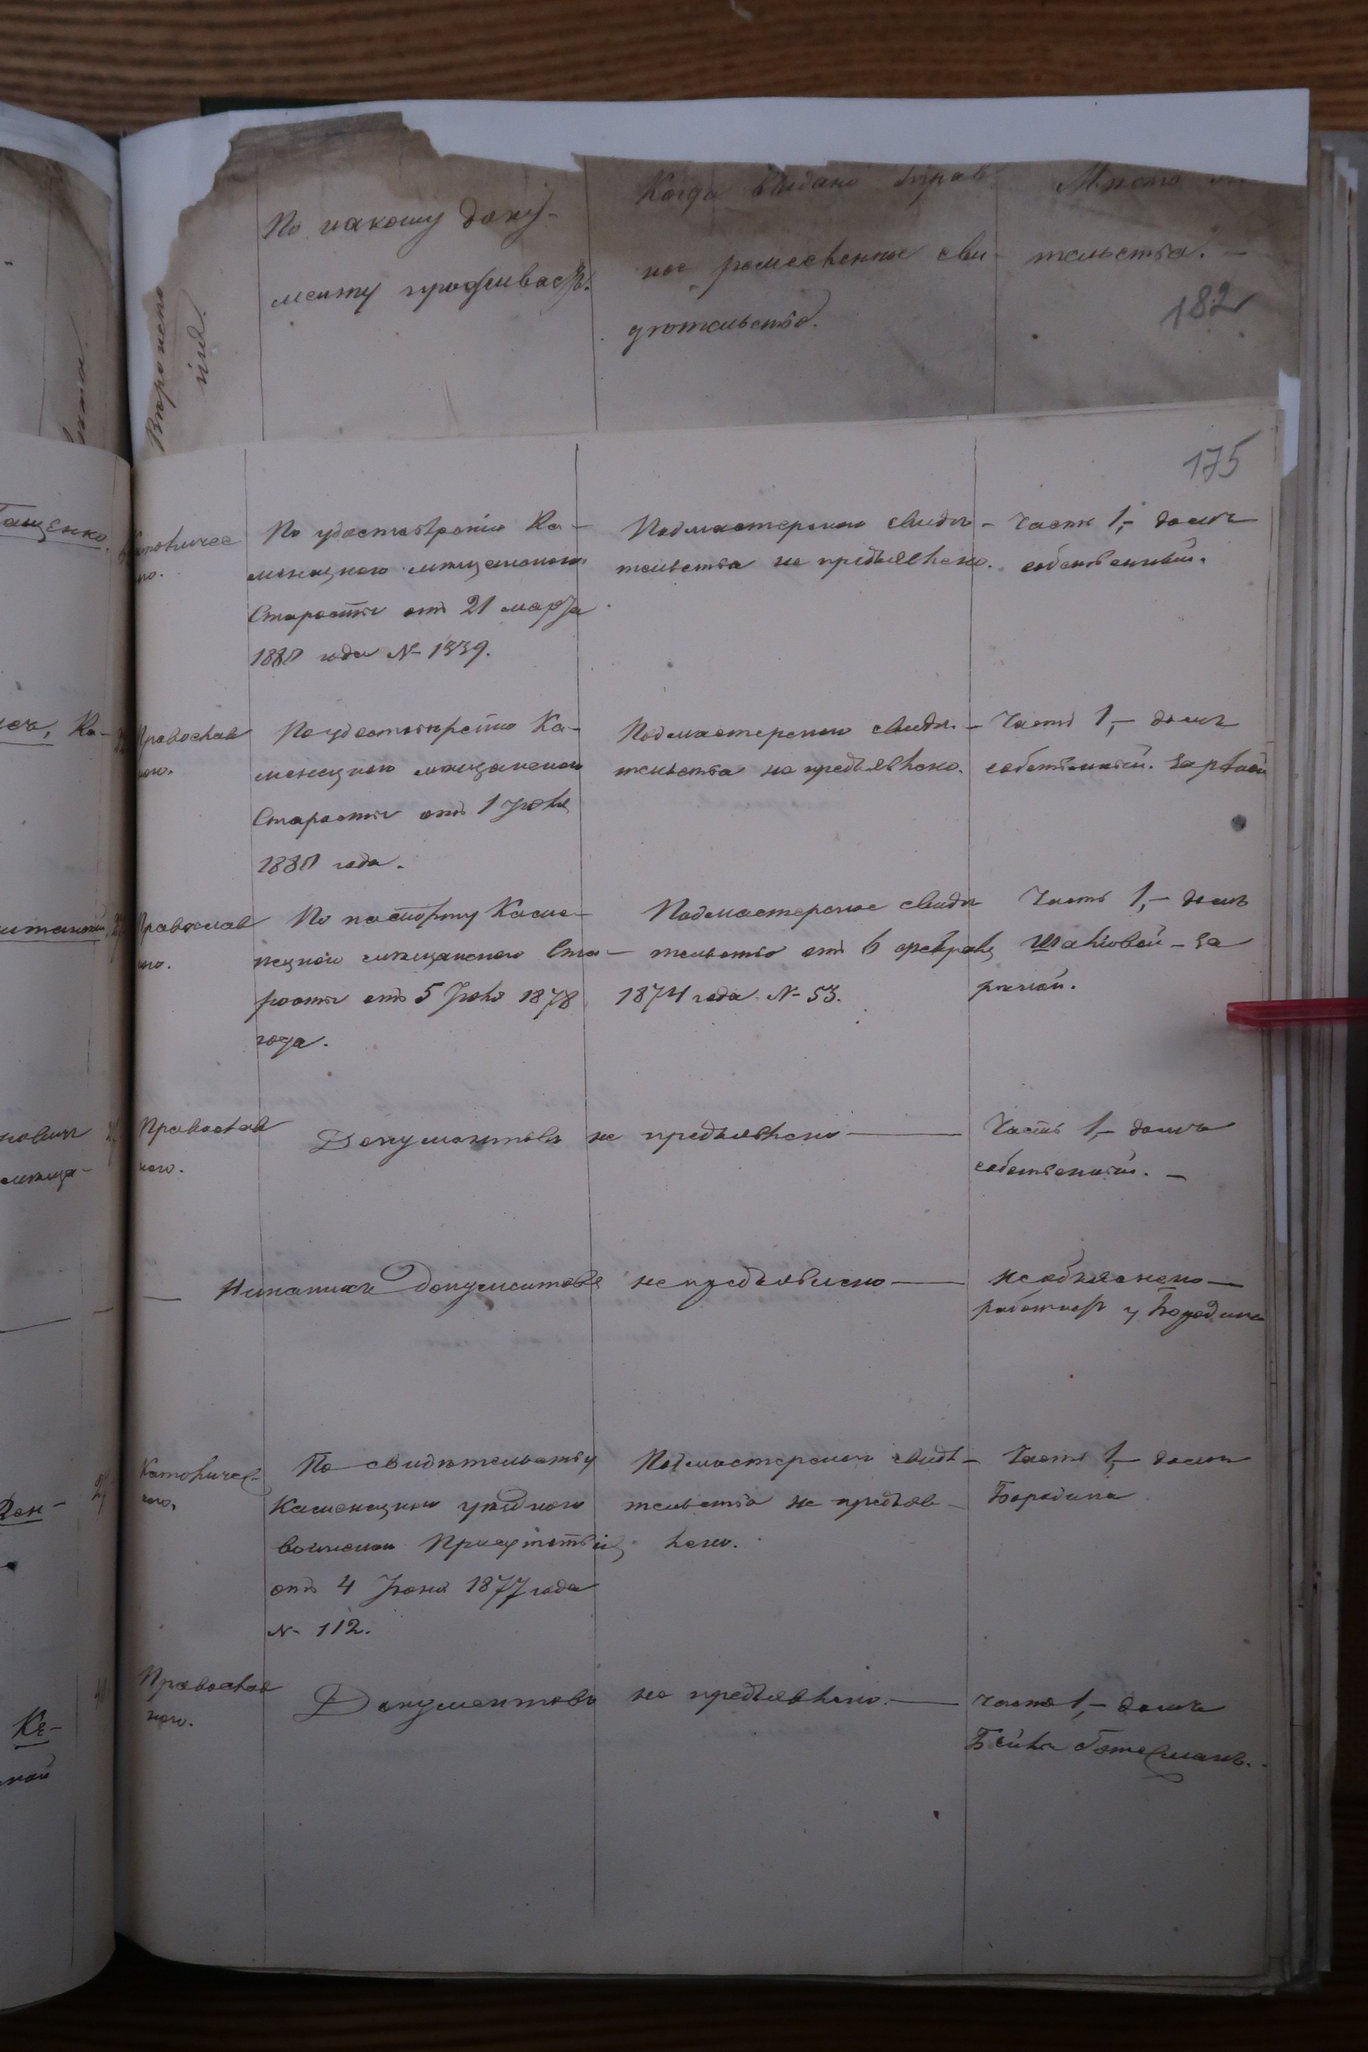 Вѣроиспо
нія
По какому доку-
менту проживаетъ.
Когда выдано справ
ное ремесленное сви-
дѣтельство.
Мѣсто жи
тельства. —
182
175
Католичес
го.
По удостовѣренію Ка-
менецкого мѣщанского
Старосты отъ 21 марта
1880 года № 1339.
Подмастерского свидѣ-
тельства не предъявлено.
Часть 1,- домъ
собственный.
Православ
ного.
По удостовѣренію Ка-
менецкого мѣщанского
Старосты отъ 1 Іюля
1880 года.
Подмастерского свидѣ-
тельства не предъявлено.
Часть 1,- домъ
собственный. За рѣкой
Православ
ного.
По паспорту Каме-
нецкого мѣщанского Ста-
росты отъ 5 Іюля 1878
года.
Подмастерское свидѣ
тельство отъ 6 февраля
1874 года № 53.
Часть 1,- домъ
за
рѣкой.
Православ
ного.
Документовъ не предъявлено —
Часть 1,- домъ
собственный. —
— Никакихъ документовъ не предъявлено —
необъяснено —
работаетъ у Бородина
Католичес-
кого.
По свидѣтельству
Каменецкого уѣздного
воинского Присутствія
отъ 4 Іюня 1877 года
№ 112.
Подмастерского свидѣ-
тельства не предъяв-
лено.
Часть 1,- домъ
Бородина
Православ
ного.
Документовъ не предъявлено. —
Часть 1,- домъ
Бейлы
Гащенко,
Ка-